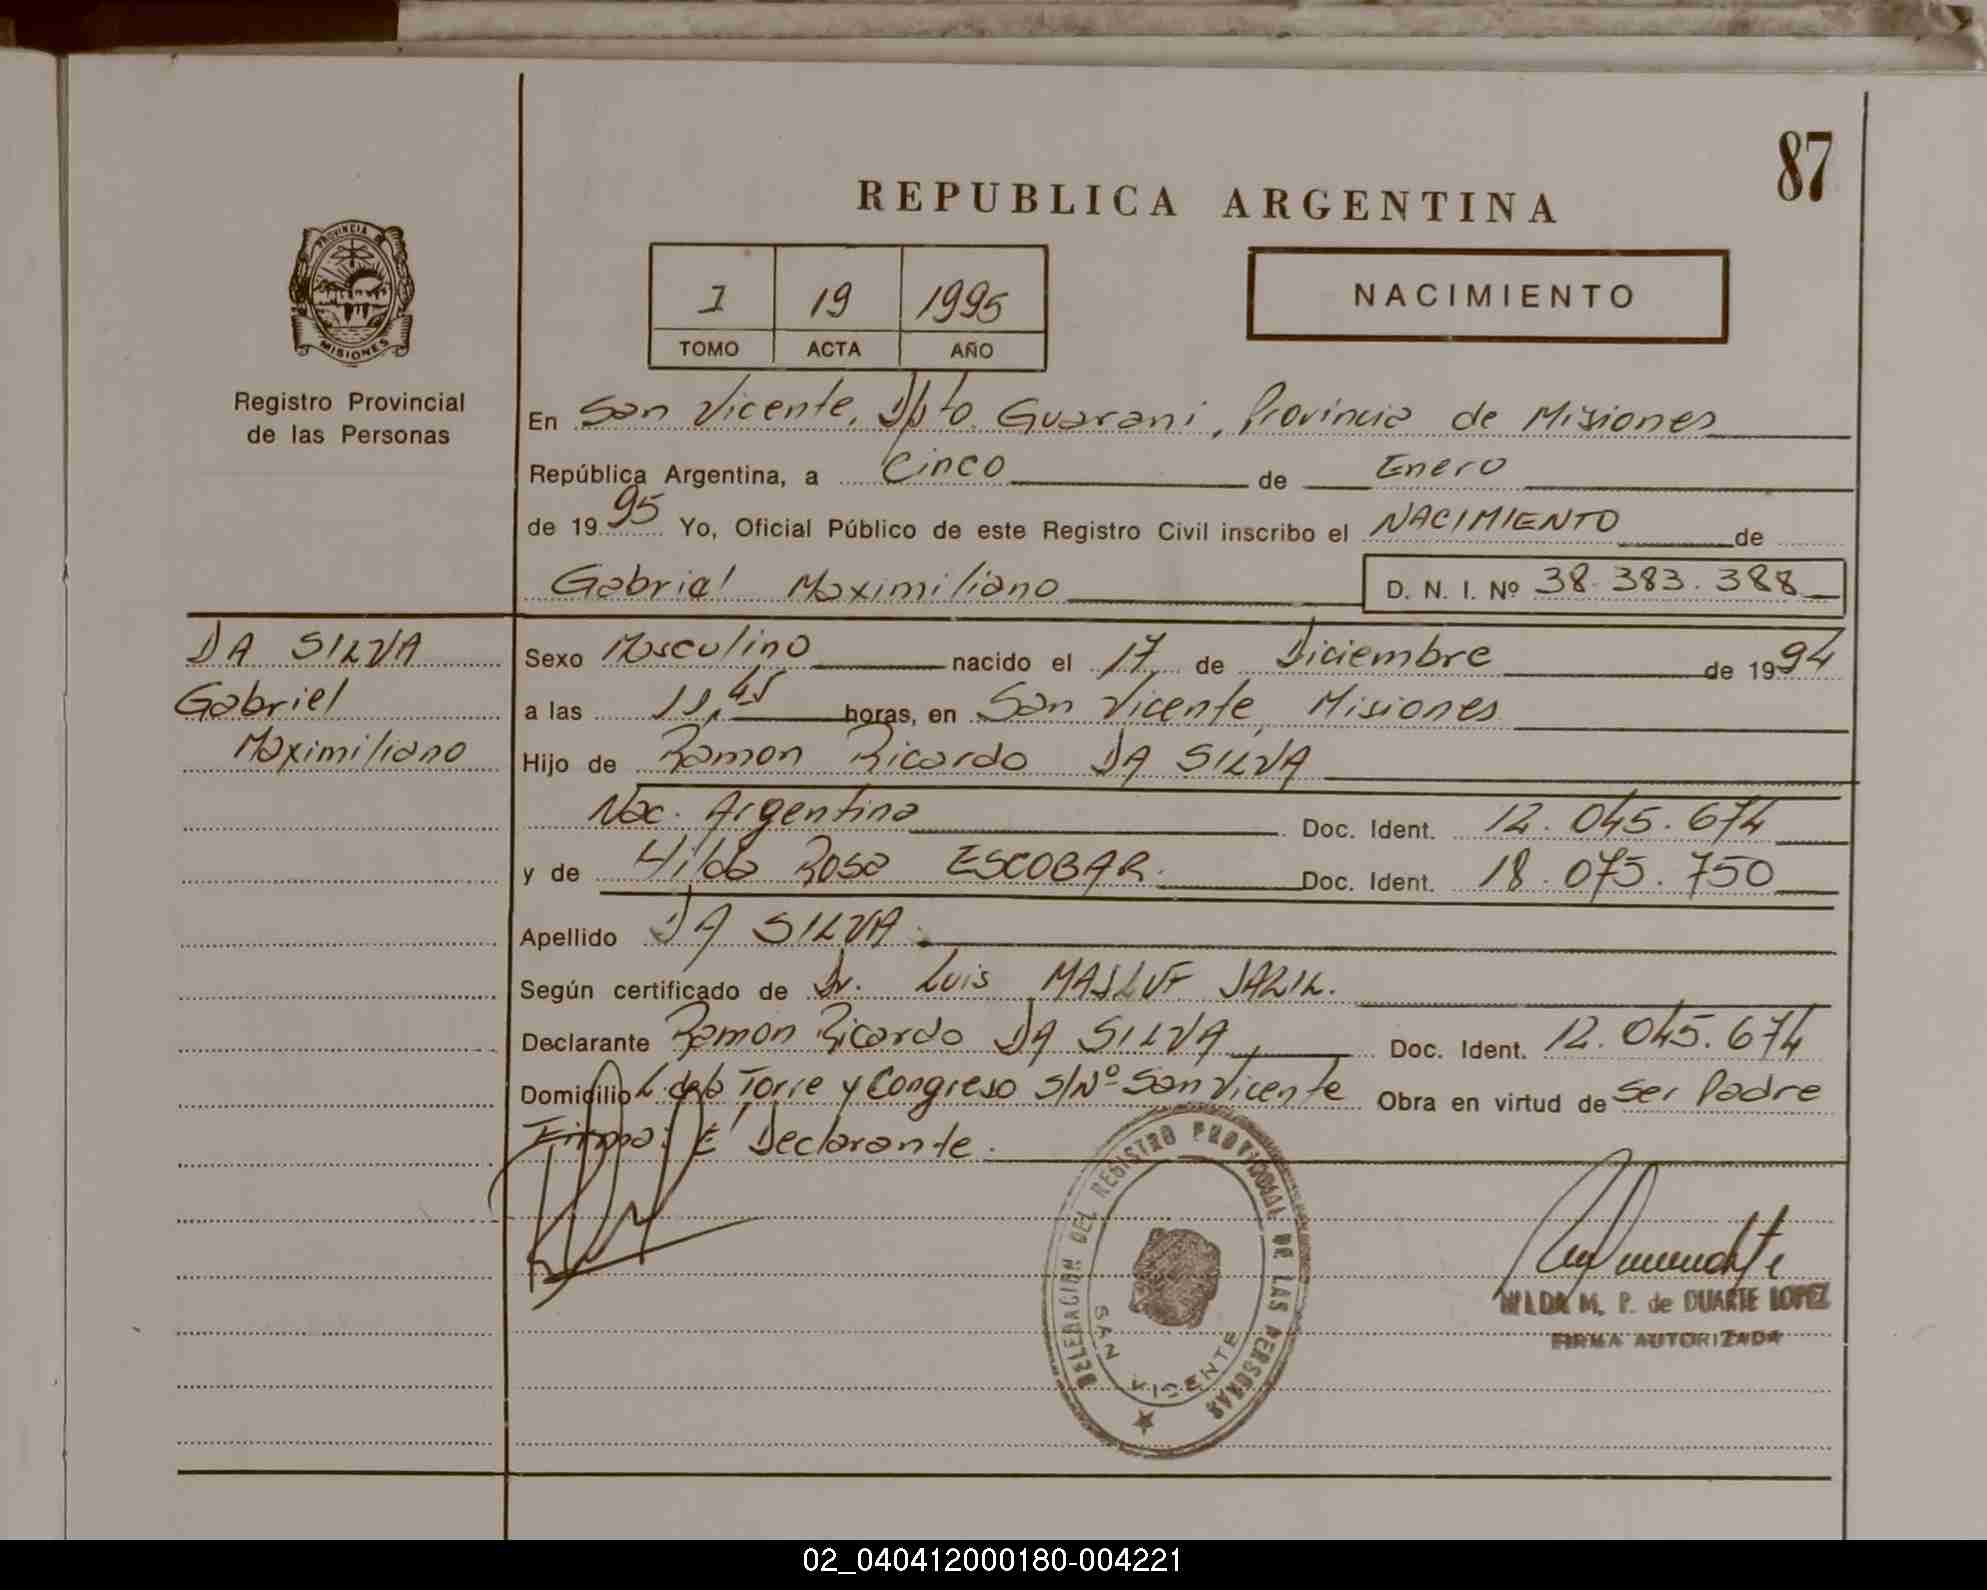 87
REPUBLICA ARGENTINA
PROVINCIA DE
MISIONES
Registro Provincial
de las Personas
I 19 1995
TOMO ACTA AÑO
NACIMIENTO
En San Vicente, Dpto. Guarani, Provincia de Misiones
República Argentina, a Cinco de Enero
de 1995 Yo, Oficial Público de este Registro Civil inscribo el NACIMIENTO de
Gabriel Maximiliano D. N. I. Nº 38.383.388
DA SILVA
Gabriel
Maximiliano
Sexo Masculino nacido el 17 de Diciembre de 1994
a las 11,45 horas, en San Vicente, Misiones
Hijo de Ramon Ricardo DA SILVA
Nac. Argentina Doc. Ident. 12.045.674
y de Hilda Rosa ESCOBAR. Doc. Ident. 18.075.750
Apellido DA SILVA.
Según certificado de Dr. Luis MASLUF
Declarante Ramon Ricardo DA SILVA, Doc. Ident. 12.045.674
Domicilio L. de la Torre y Congreso S/Nº San Vicente Obra en virtud de Ser Padre
Firma: El Declarante.
DELEGACION DEL REGISTRO PROVINCIAL DE LAS PERSONAS
SAN VICENTE
HILDA M. P. de DUARTE LOPEZ
FIRMA AUTORIZADA
02_040412000180-004221